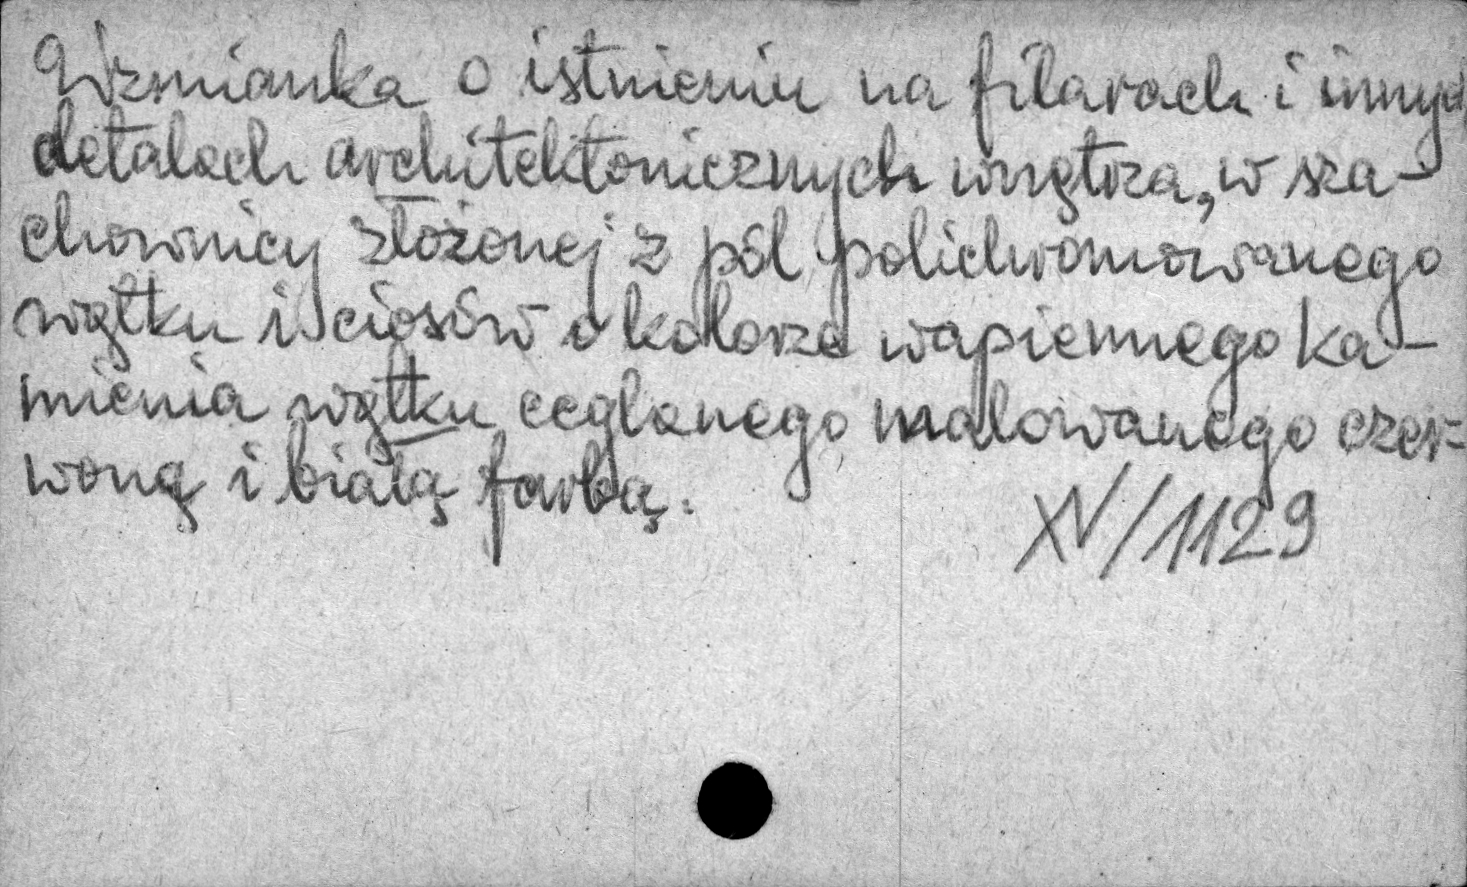 Wzmianka o istnieniu na filarach i innych
detalach architektonicznych wnętrza, w sza-
chownicy złożonej z pól polichromowanego
wątku i ciosów o kolorze wapiennego ka-
mienia wątku ceglanego malowanego czer=
woną i białą farbą.
XV/1129